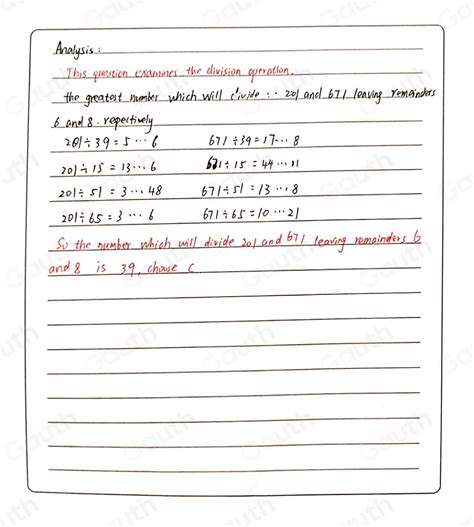 Analysis :
This question examines the division operation.
the greatest number which will divide : . 201 and 671 leaving remainders
6 and 8 . repectively
201 ÷ 39 = 5 ... 6 671 ÷ 39 = 17 ... 8
201 ÷ 15 = 13 ... 6 671 ÷ 15 = 44 ... 11
201 ÷ 51 = 3 ... 48 671 ÷ 51 = 13 ... 8
201 ÷ 65 = 3 ... 6 671 ÷ 65 = 10 ... 21
So the number which will divide 201 and 671 leaving remainders 6
and 8 is 39, chouse C
Gauth